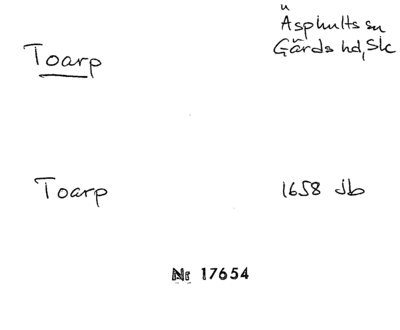 Toarp
Äsphults sn
Gärds hd, Sk
Toarp
1658 Jb
Nr 17654